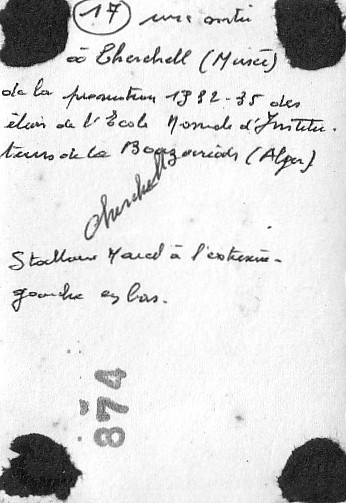 17 une sortie
à Cherchell (Musée)
de la promotion 1932-35 des
élèves de l'École Normale d'Institu-
teurs de la Bouzaréah (Alger)
cherchell
Marcel à l'extrême-
gauche en bas.
874